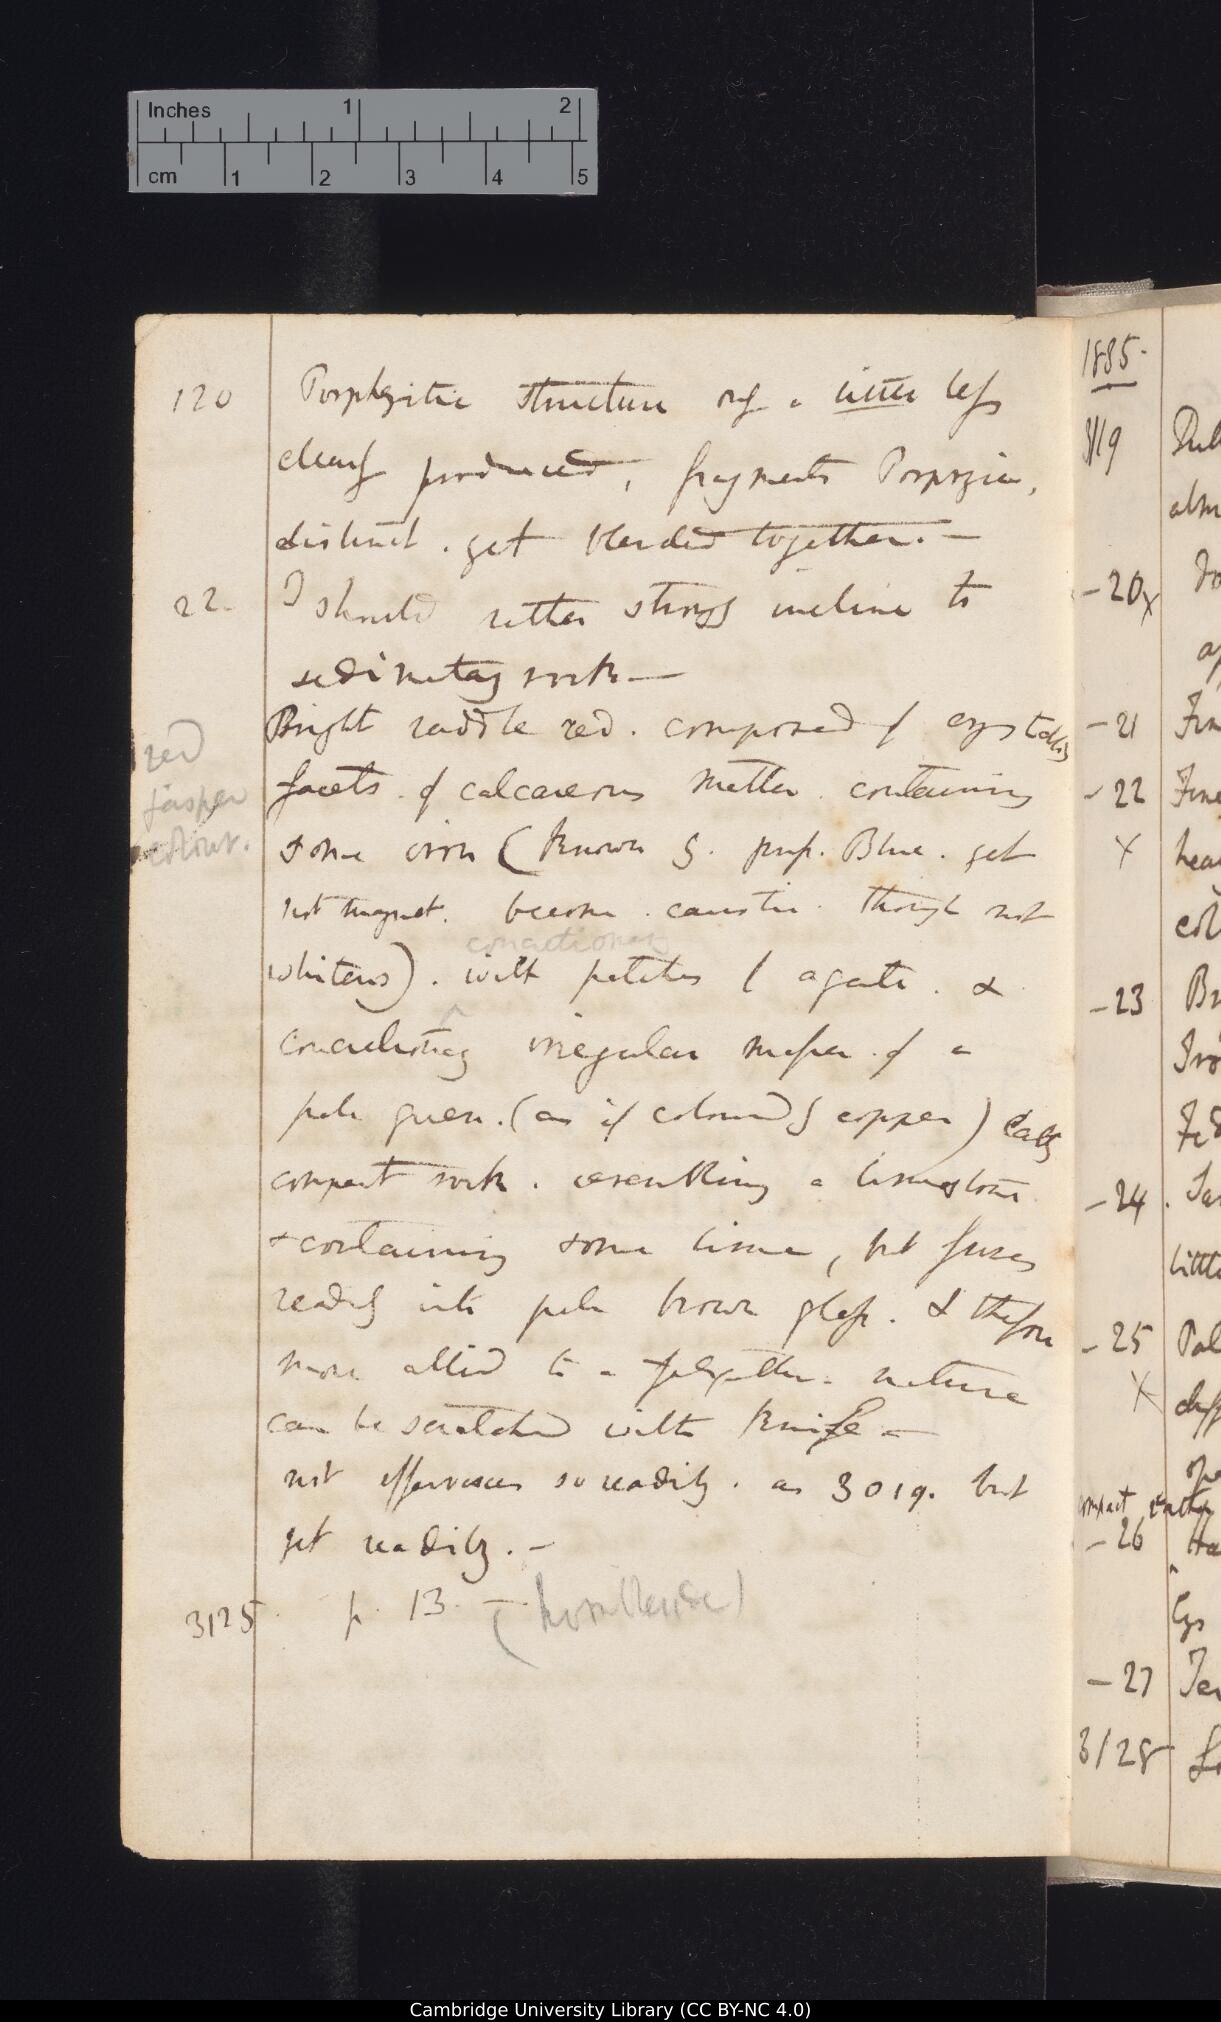 Inches 1 2
cm 1 2 3 4 5
120 Porphyritic structure only a little less
clearly produced, fragments
distinct. yet blended together. —
22. I should rather strongly incline to
sedimetary rock —
Bright raddle red. composed of crystalline
red
jasper
colour.
facets. of calcareous matter. containing
some iron (known by. prup. Blue. yet
not magnet. become. caustic. though not
concretionary
whitens). with patches of agate. &
concretionary irregular masses of a
pale green. (as if coloured by copper)
compact rock. resembling a limestone
& containing some lime, but fuses
readily into pale brown glass. & therefore
more allied to a nature
can be scratched with knife —
not effervesces so readily. as 3019. but
yet readily. —
3125 p. 13. — (hornblende)
1885.
3119
abm
-20x
-21 Fine
-22 Fine
X hea
col
-23 Br
Iro
-24. Jas
little
-25 Pal
X
compact rather
-26 Ha
-27
3128
Cambridge University Library (CC BY-NC 4.0)